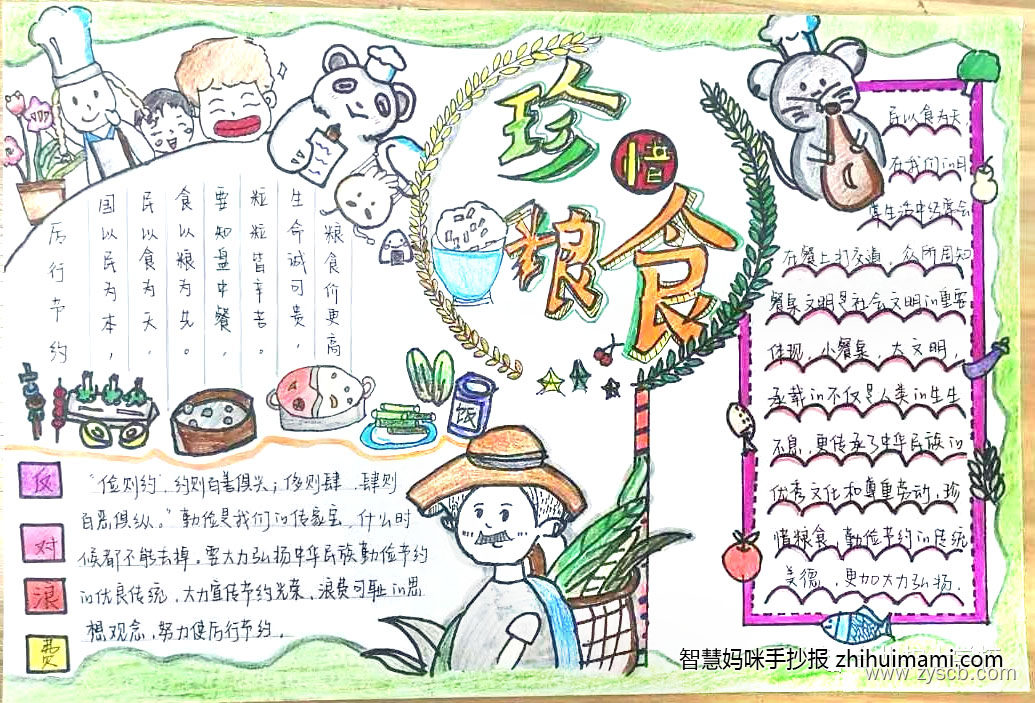 珍惜
粮食
厉行节约
国以民为本，
民以食为天，
食以粮为先。
要知盘中餐，
粒粒皆辛苦。
生命诚可贵，
粮食价更高
饭
对
浪
费
"俭则约，约则百善俱兴；侈则肆，肆则
百恶俱纵。"勤俭是我们的传家宝，什么时
候都不能去掉。要大力弘扬中华民族勤俭节约
的优良传统，大力宣传节约光荣、浪费可耻的思
想观念，努力使厉行节约。
民以食为天
在我们的日
常生活中经常会
在餐上打交道，众所周知
餐桌文明是社会文明的重要
体现，小餐桌，大文明，
承载的不仅是人类的生生
不息，更传承了中华民族的
优秀文化和尊重劳动，珍
惜粮食，勤俭节约的传统
美德，更加大力弘扬.
智慧妈咪手抄报 zhihuimami.com
www.zyscb.com